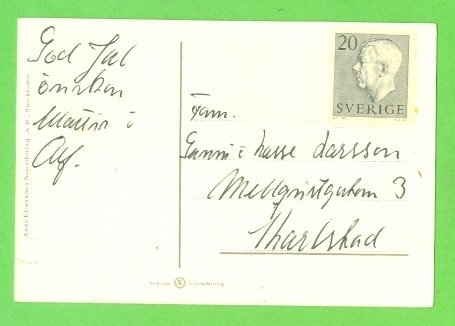 God Jul
önskar
Maissi i
Alf.
Axel Eliassons Konstförlag A.B. Stockholm
20
SVERIGE
Fam.
Gunni i Lasse Larsson
Mellqvistgatan 3
Karlstad
Svensk Æ tillverkning